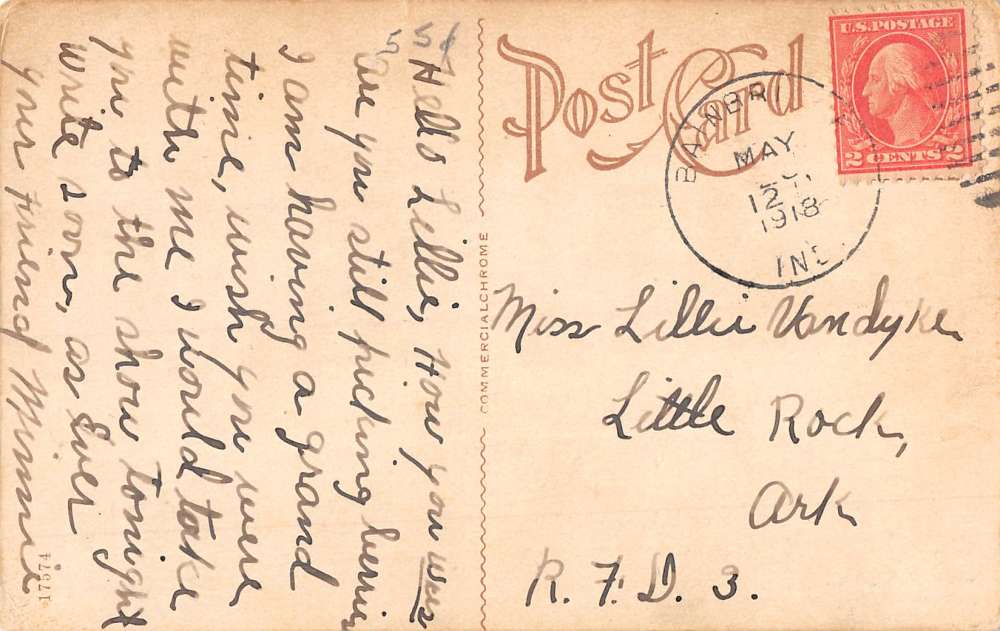 Hello Lillie, How you was
Are you still picking berries
I am having a grand
time, wish you were
with me I would take
you to the show tonight
write soon, as Ever
your friend Minnie
17574
COMMERCIALCHROME
Post Card
U.S. POSTAGE
2 CENTS 2
MAY
12
1918
Miss Lillie Vandyke
Little Rock,
Ark
R. F. D. 3.